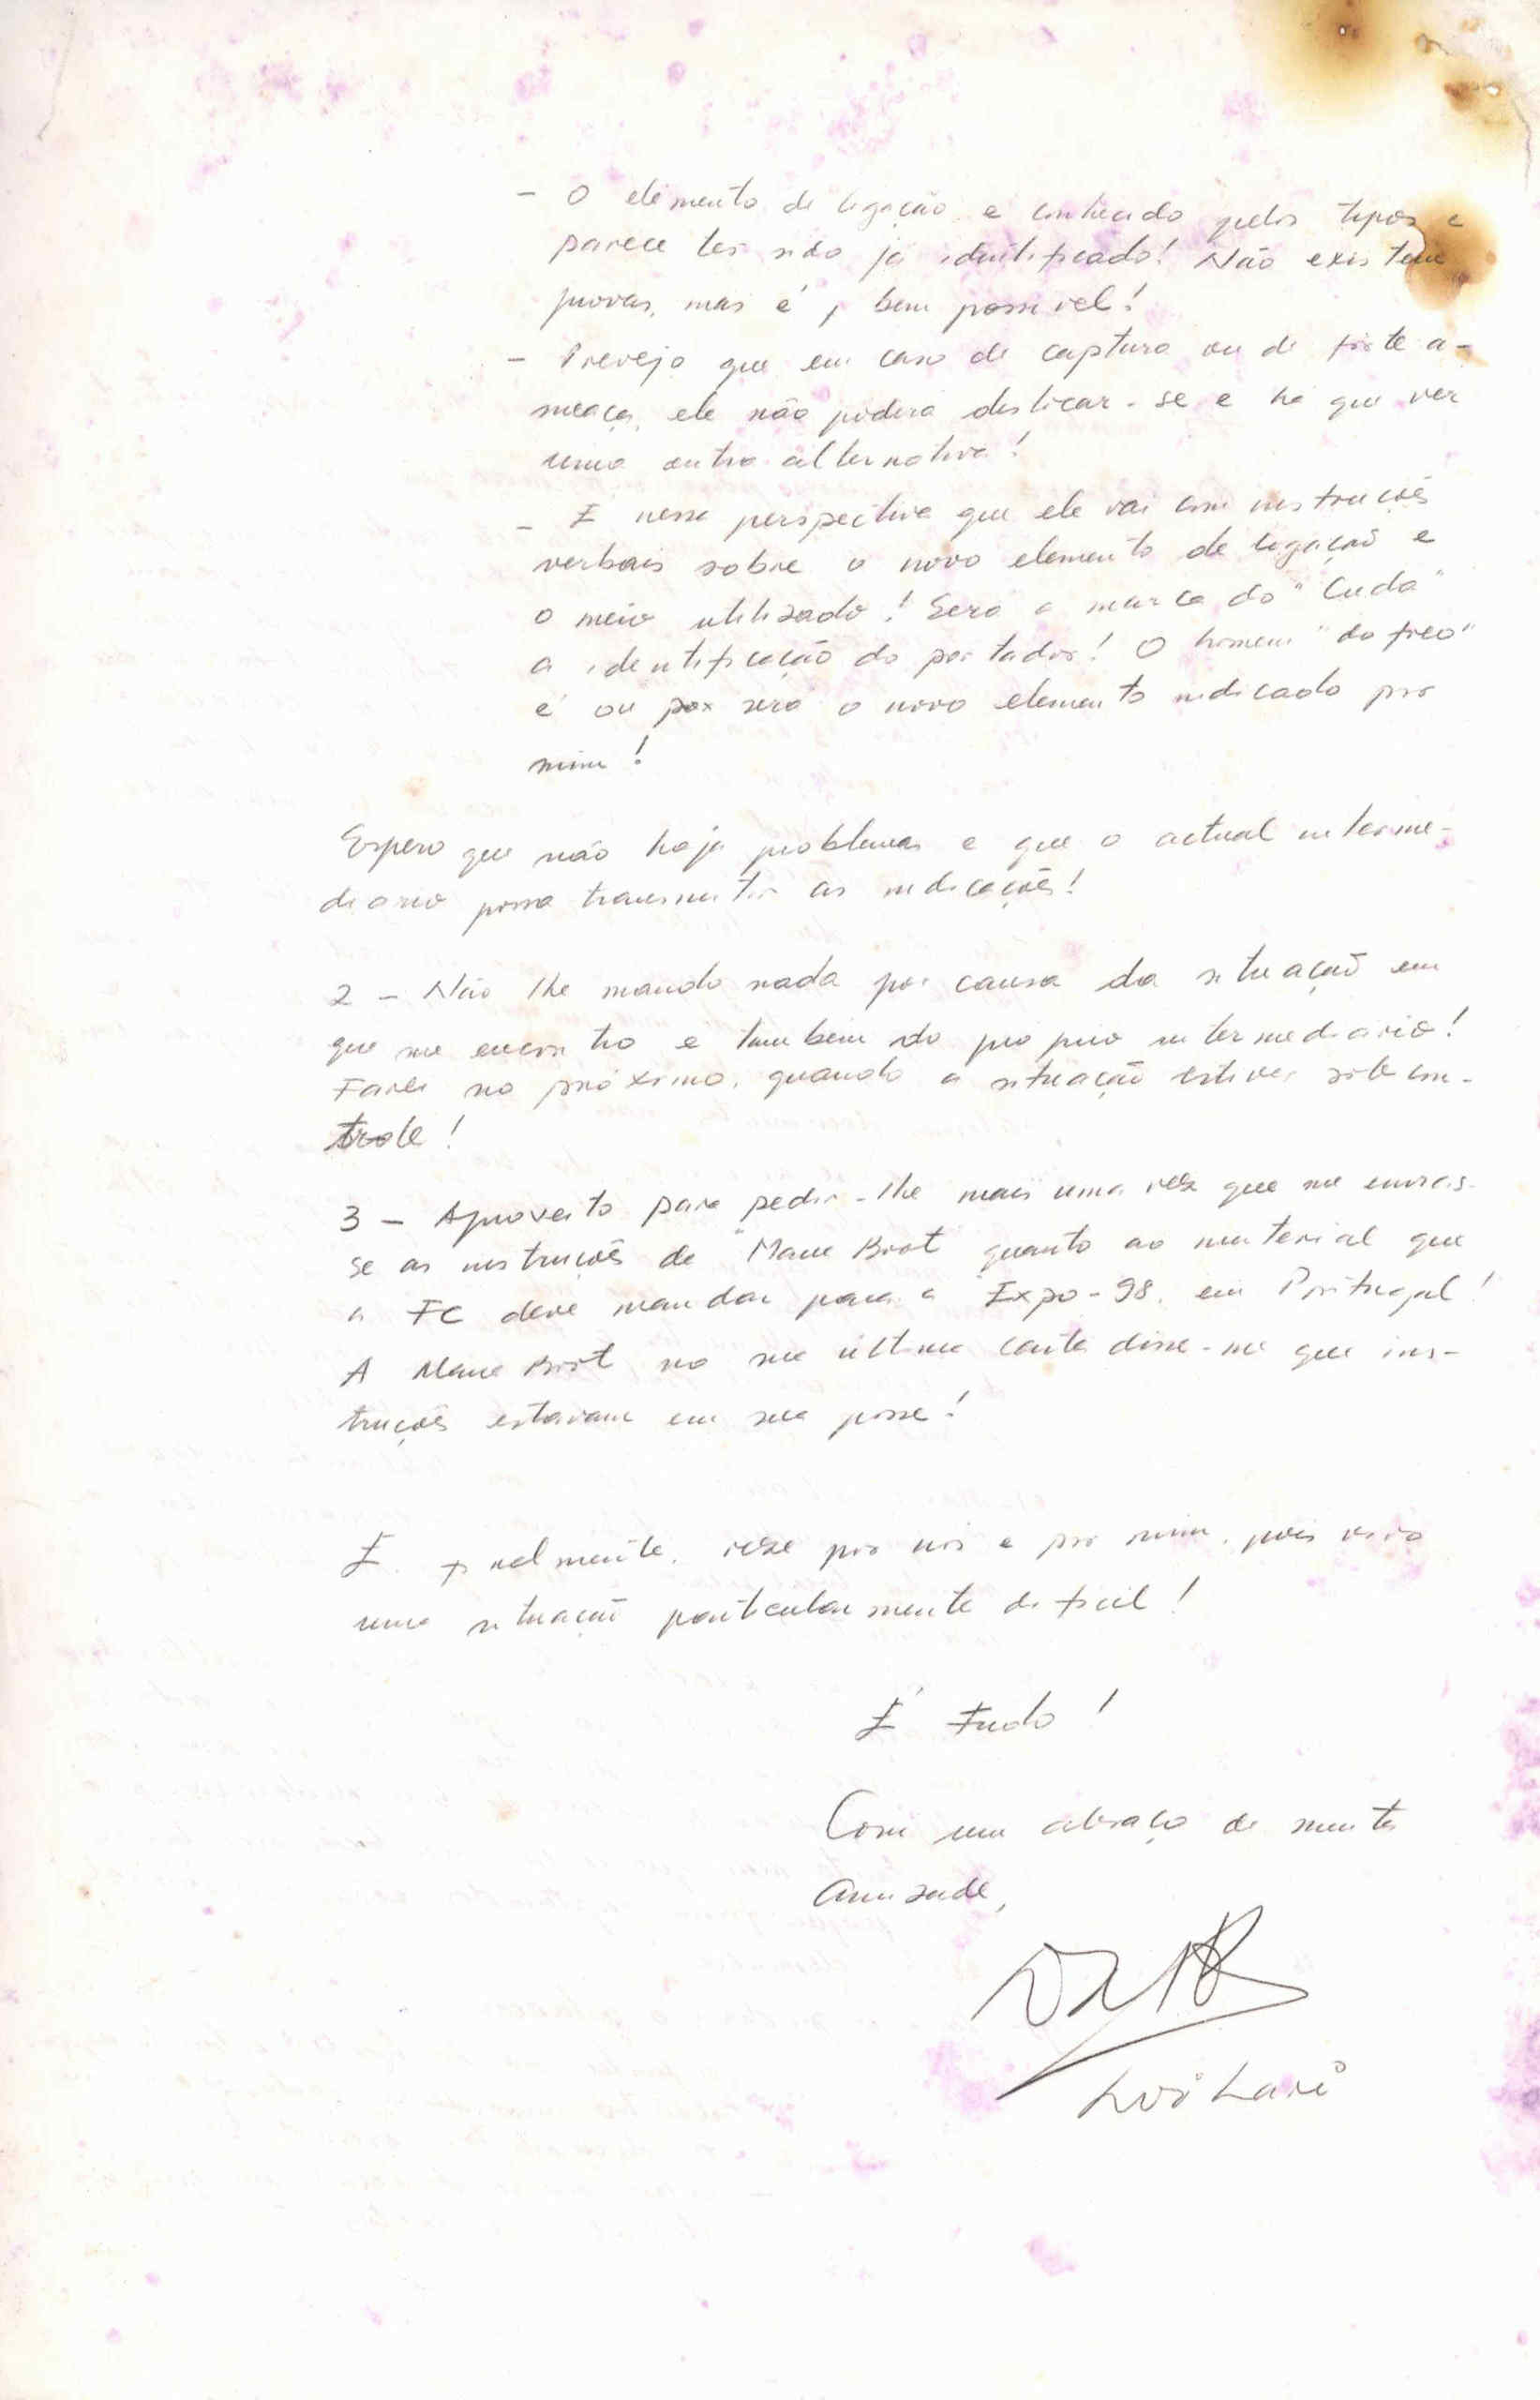 - O elemento de ligação é conhecido pelos tipos e
parece ter sido já identificado! Não existem
provas, mas é, bem possivel!
- Prevejo que em caso de captura ou de forte a-
meaça, ele não poderá deslocar-se e há que ver
uma outra alternativa!
- É nessa perspectiva que ele vai com instruções
verbais sobre o novo elemento de ligação e
o meio utilisado! Será a marca do "Cuda"
a identificação do portador! O homem "do freo"
é ou será o novo elemento indicado por
mim!
Espero que não haja problemas e que o actual interme-
diário possa transmitir as indicações!
2 - Não lhe mando nada por causa da situação em
que me encontro e tambem do proprio intermediário!
Farei no próximo, quando a situação estiver sob con-
trole!
3 - Aproveito para pedir-lhe mais uma vez que me envias-
se as instruções de "Mane Brot quanto ao material que
a FC deve mandar para a Expo-98, em Portugal!
A Mane Brot na sua última carta disse-me que ins-
truções estavam em sua posse!
E, finalmente, reze por nós e por mim, pois vivo
uma situação particularmente dificil!
É tudo!
Com um abraço de muita
amizade,